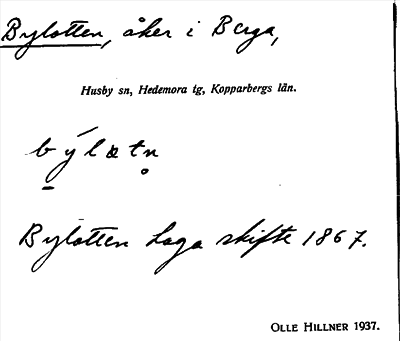 Bylotten, åker i Berga,
Husby sn, Hedemora tg, Kopparbergs län.
b̲ýlætn̥
Bylotten Laga skifte 1867.
OLLE HILLNER 1937.